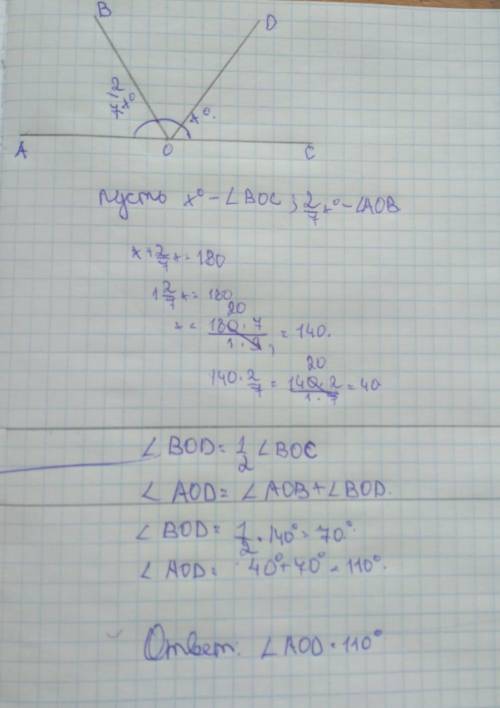 B D
2/7 x° x°.
A O C
Пусть x° - ∠BOC ; 2/7 x° - ∠AOB
x + 2/7 x = 180
1 2/7 x = 180
x = 180 · 7 / 1 · 9 = 140.
20
140 · 2/7 = 140 · 2 / 1 · 7 = 40
20
∠BOD = 1/2 ∠BOC
∠AOD = ∠AOB + ∠BOD.
∠BOD = 1/2 · 140° = 70°.
∠AOD = 40° + 70° = 110°.
Ответ: ∠AOD = 110°